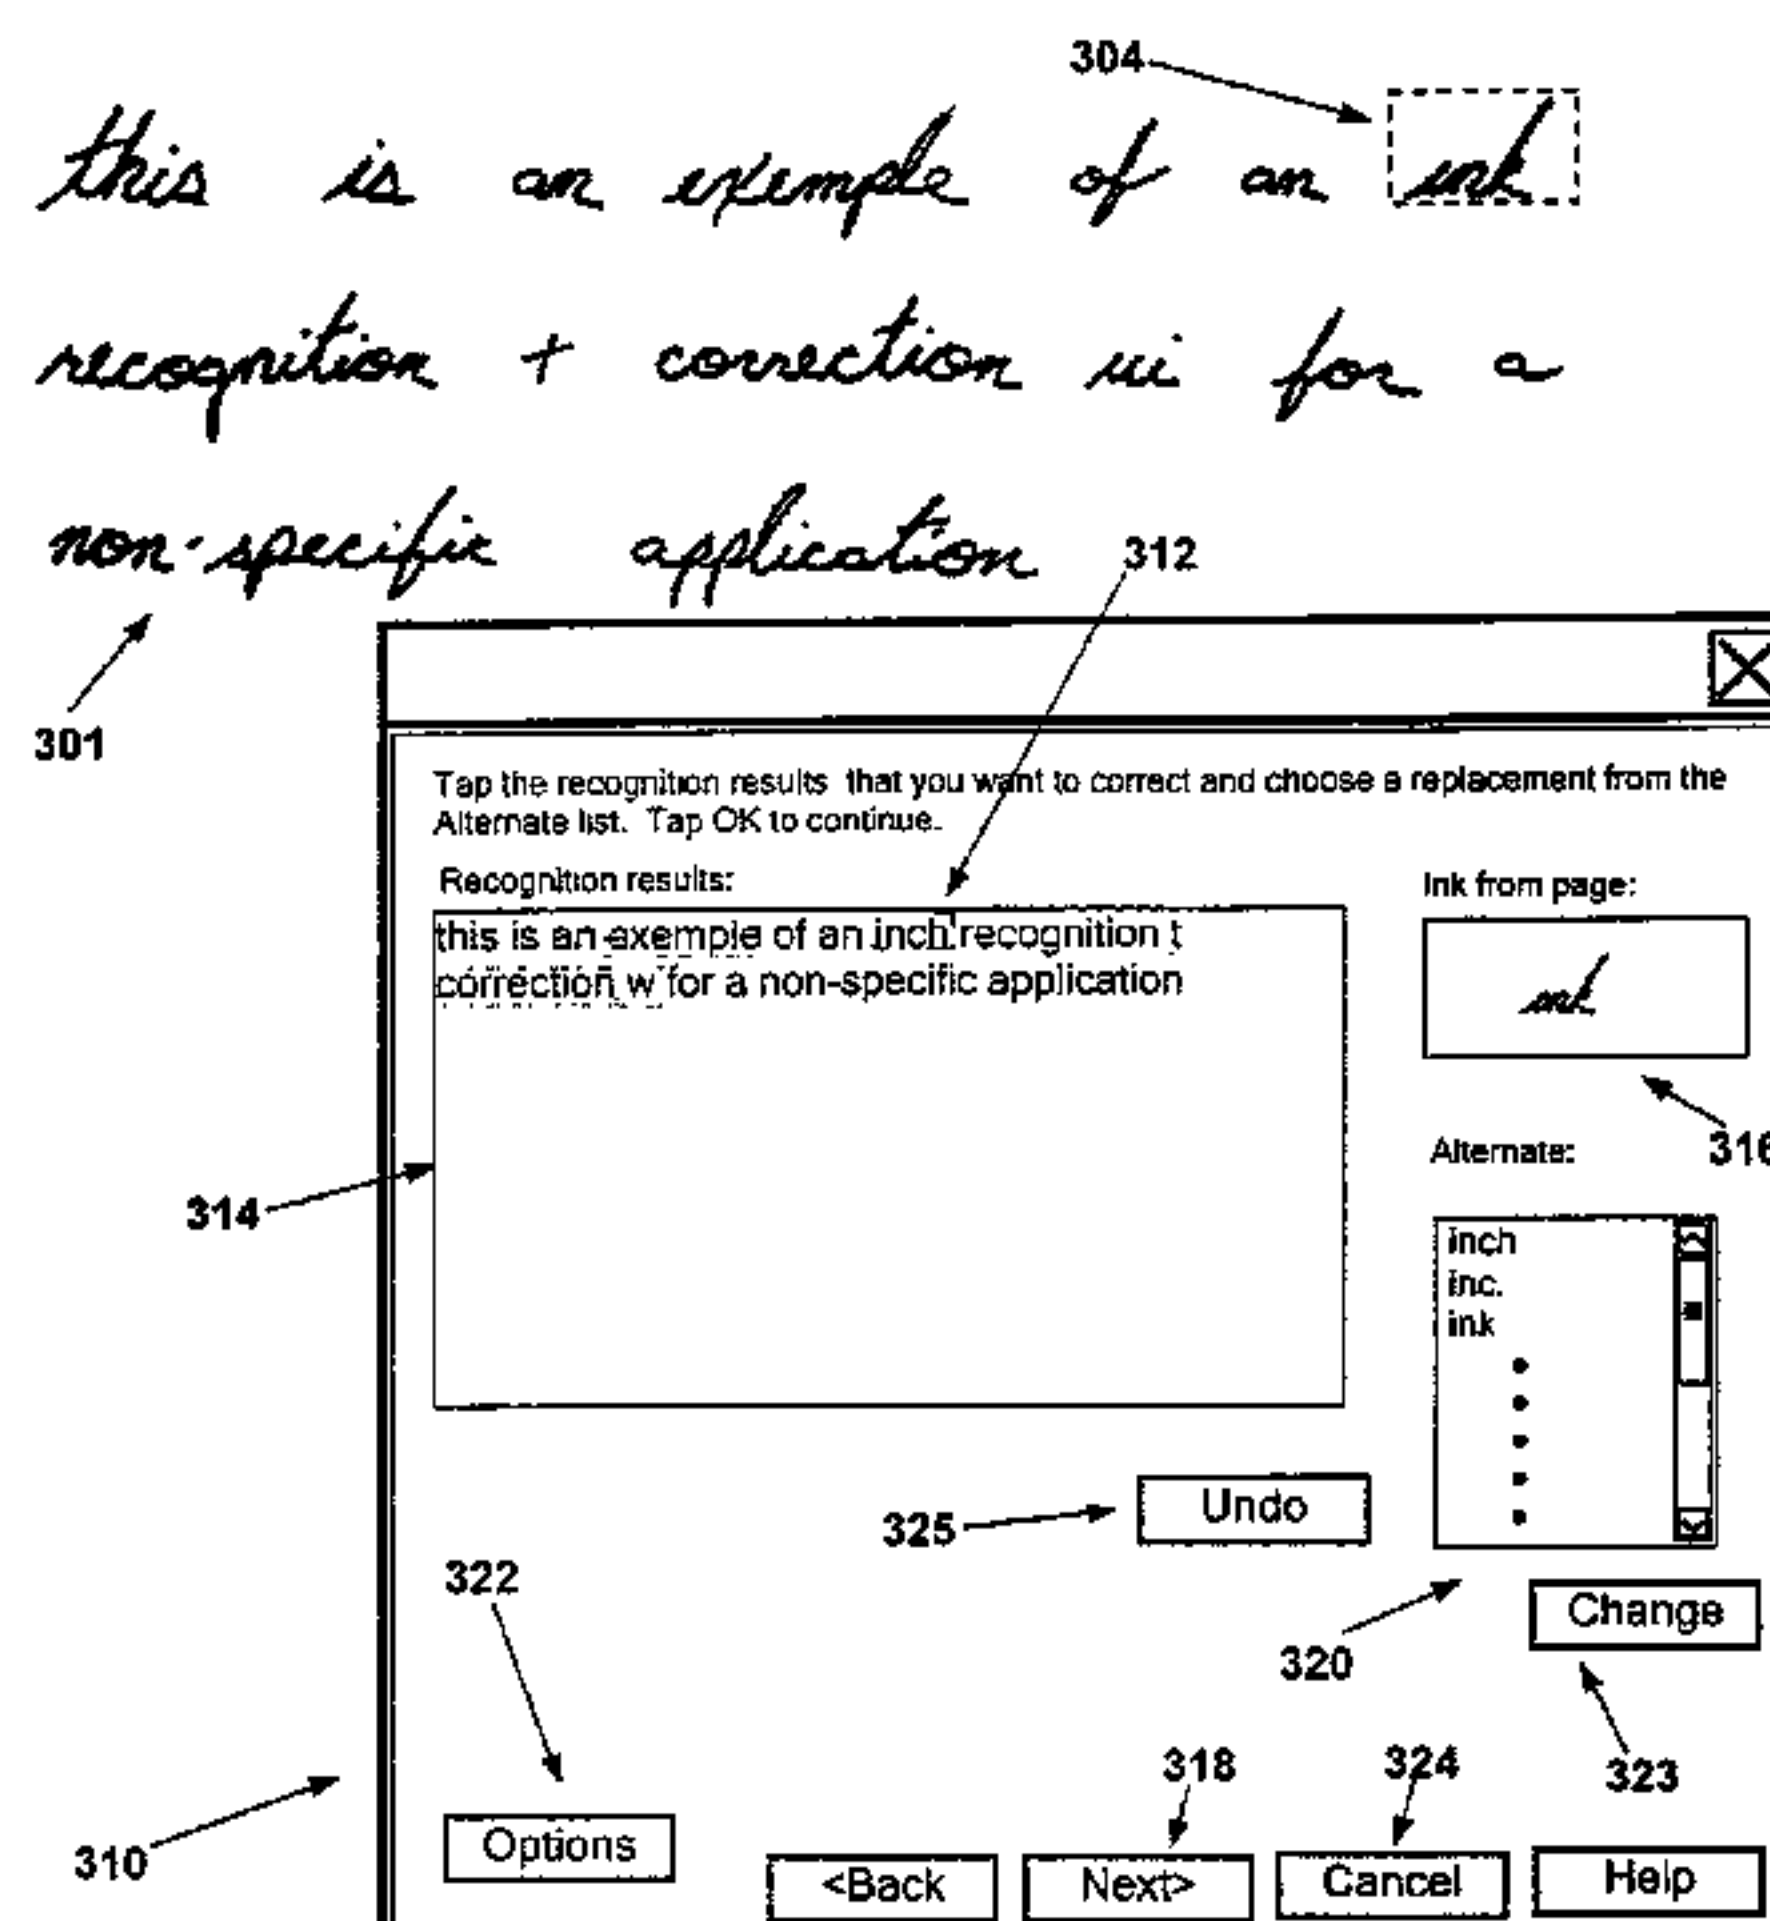 304
this is an exemple of an ink
recognition + correction ui for a
non-specific application
312
301
Tap the recognition results that you want to correct and choose a replacement from the
Alternate list. Tap OK to continue.
Recognition results:
Ink from page:
this is an exemple of an inch recognition t
correction w for a non-specific application
ink
316
Alternate:
314
inch
inc.
ink
Undo
325
322
Change
320
318
324
323
310
Options
<Back
Next>
Cancel
Help